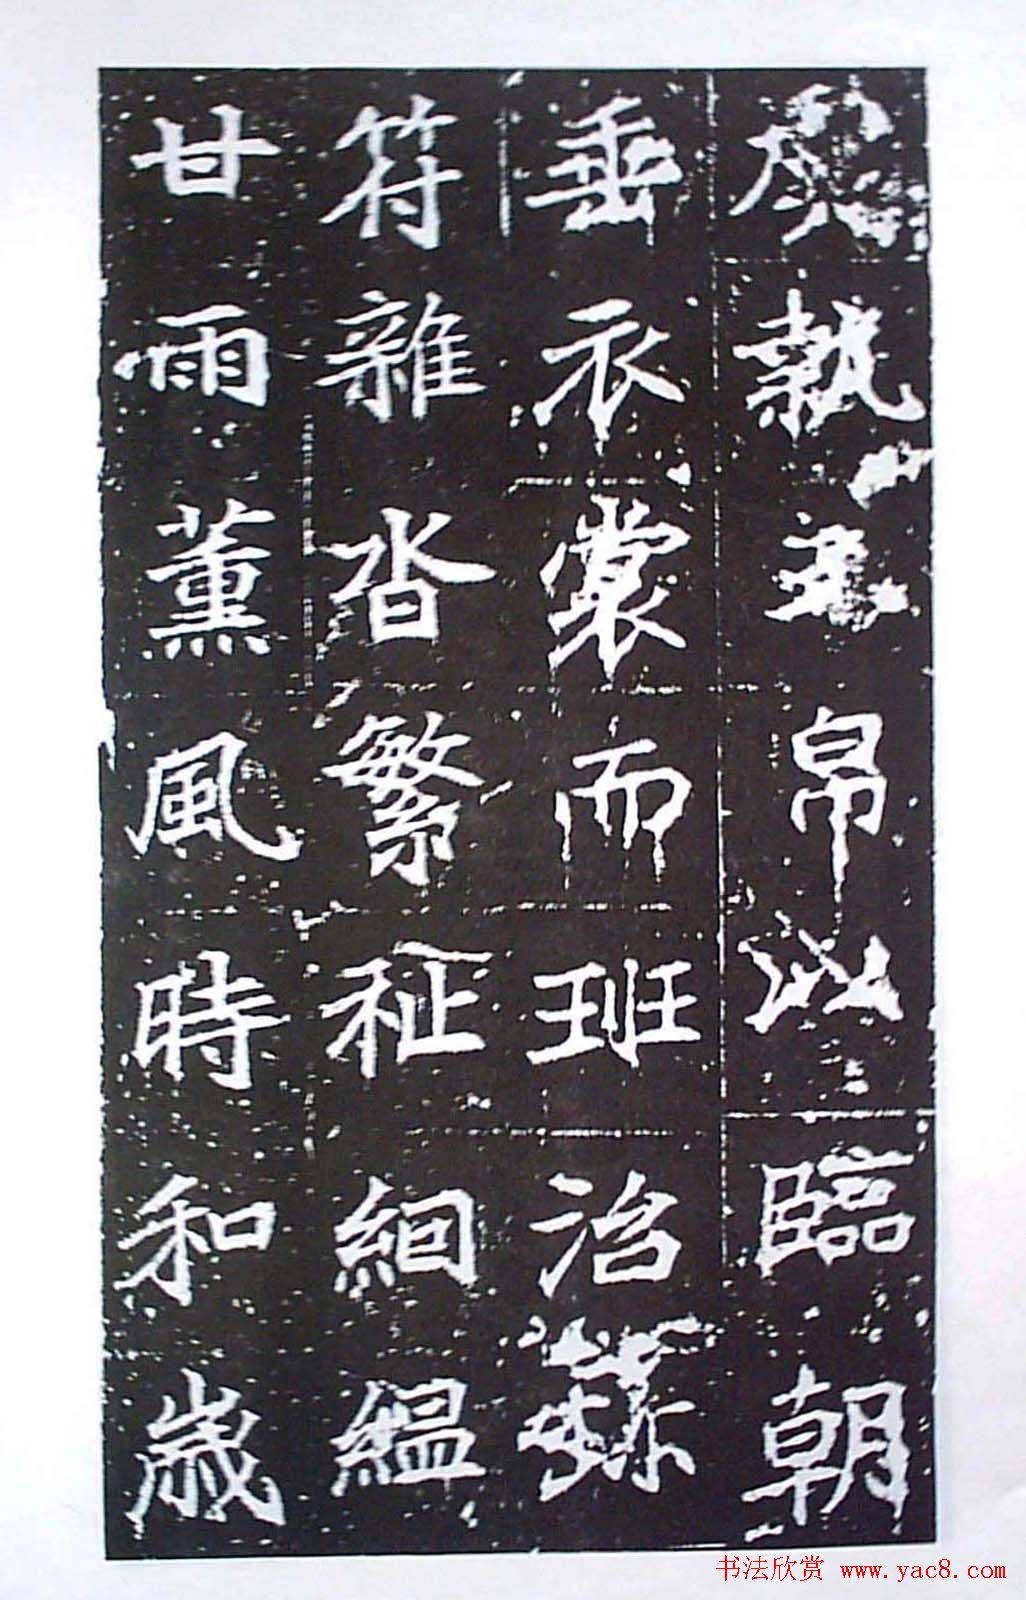 執帛以臨朝
垂衣裳而班治
符雜沓繁祉絪縕
甘雨薰風時和歲
书法欣赏 www.yac8.com